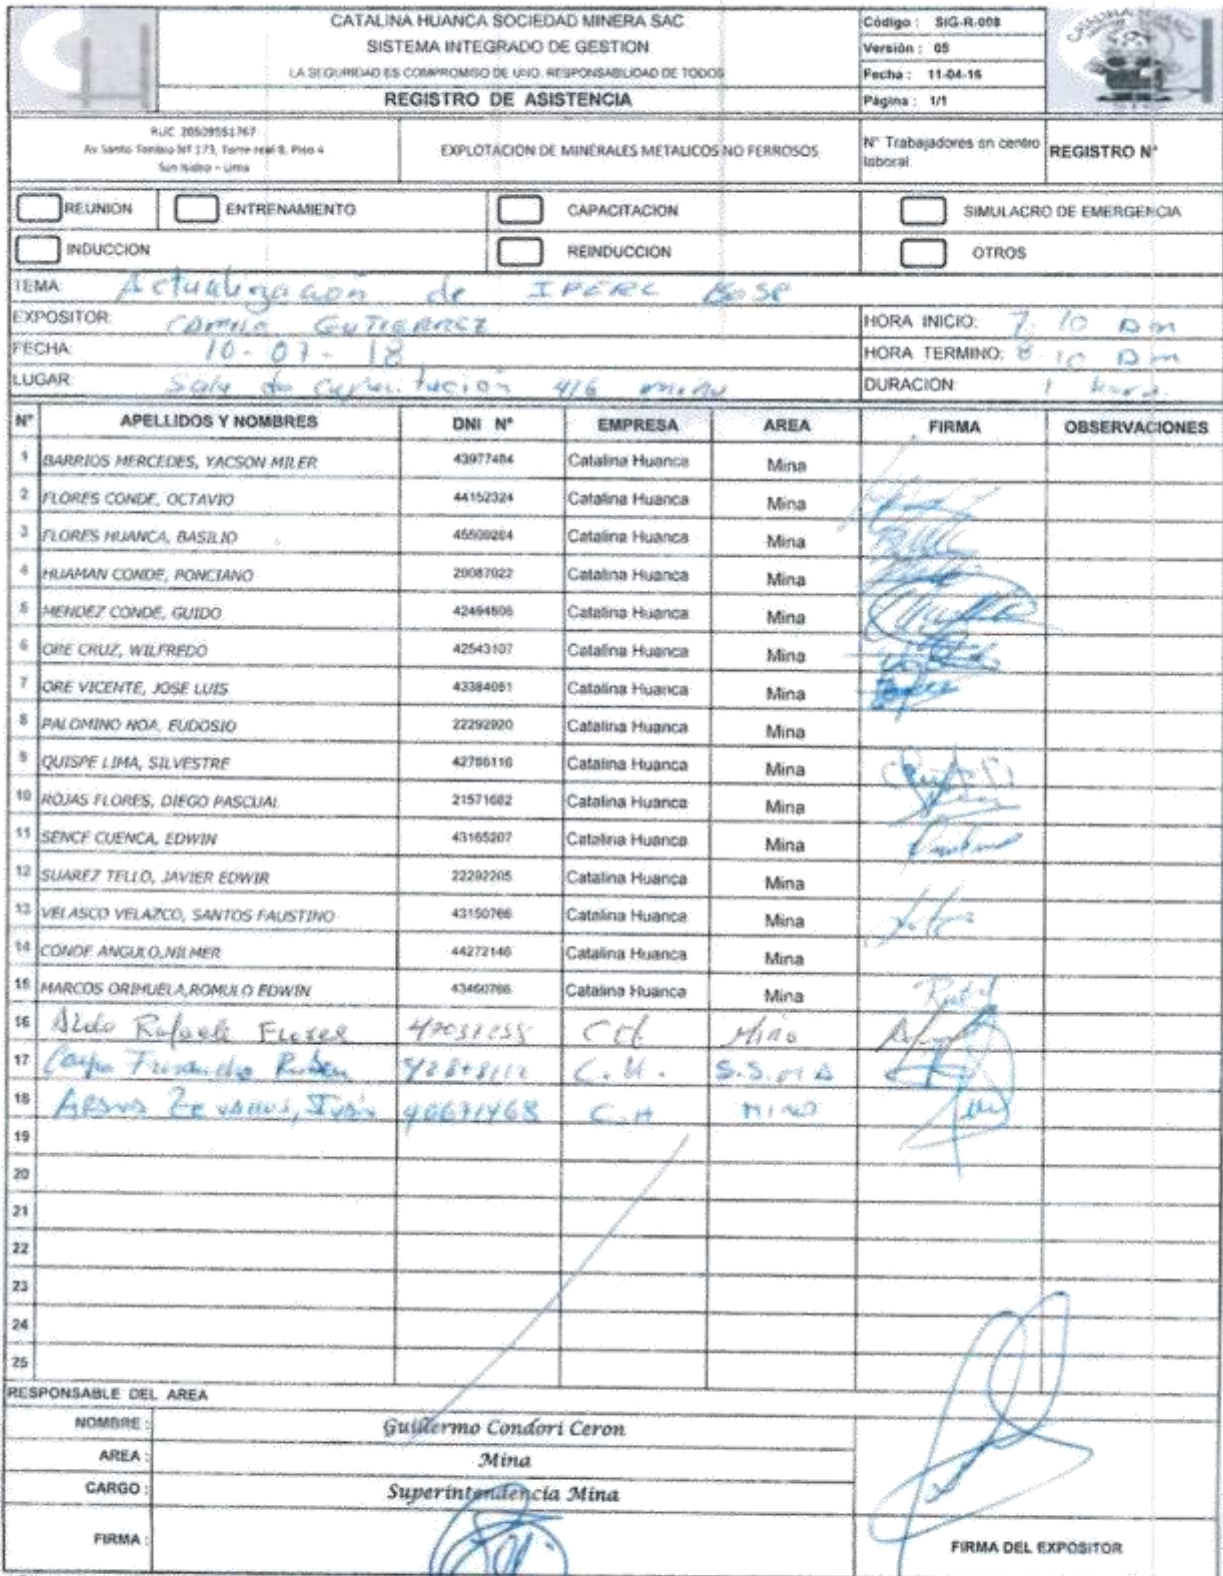 CATALINA HUANCA SOCIEDAD MINERA SAC
SISTEMA INTEGRADO DE GESTION
LA SEGURIDAD ES COMPROMISO DE UNO, RESPONSABILIDAD DE TODOS
REGISTRO DE ASISTENCIA
Código : SIG-R-008
Versión : 05
Fecha : 11-04-16
Página : 1/1
RUC 20509551767
San Isidro - Lima
EXPLOTACION DE MINERALES METALICOS NO FERROSOS
N° Trabajadores en centro laboral
REGISTRO N°
REUNION ENTRENAMIENTO CAPACITACION SIMULACRO DE EMERGENCIA
INDUCCION REINDUCCION OTROS
TEMA: Actualización de IPERC Base
EXPOSITOR: CAMILO GUTIERREZ HORA INICIO: 7:10 am
FECHA: 10-07-18 HORA TERMINO: 8:10 am
LUGAR: Sala de capacitación mina DURACION: 1 hora
N° APELLIDOS Y NOMBRES DNI N° EMPRESA AREA FIRMA OBSERVACIONES
1 BARRIOS MERCEDES, YACSON MILER 43977484 Catalina Huanca Mina
2 FLORES CONDE, OCTAVIO 44152324 Catalina Huanca Mina
3 FLORES HUANCA, BASILIO Catalina Huanca Mina
4 HUAMAN CONDE, PONCIANO Catalina Huanca Mina
5 MENDEZ CONDE, GUIDO Catalina Huanca Mina
6 ORE CRUZ, WILFREDO 42543107 Catalina Huanca Mina
7 ORE VICENTE, JOSE LUIS 43384051 Catalina Huanca Mina
8 PALOMINO NOA, EUDOSIO 22292920 Catalina Huanca Mina
9 QUISPE LIMA, SILVESTRE 42786116 Catalina Huanca Mina
10 ROJAS FLORES, DIEGO PASCUAL 21571682 Catalina Huanca Mina
11 SENCE CUENCA, EDWIN 43165207 Catalina Huanca Mina
12 SUAREZ TELLO, JAVIER EDWIR 22292205 Catalina Huanca Mina
13 VELASCO VELAZCO, SANTOS FAUSTINO 43150766 Catalina Huanca Mina
14 CONDE ANGULO,NILMER 44272146 Catalina Huanca Mina
15 MARCOS ORIHUELA,ROMULO EDWIN 43460766 Catalina Huanca Mina
16 Aldo Rafaele Flores CH Mina
17 Ruben C.H. S.S.MA
18 Iván 40671468 C.H MINA
19
20
21
22
23
24
25
RESPONSABLE DEL AREA
NOMBRE : Guillermo Condori Ceron
AREA : Mina
CARGO : Superintendencia Mina
FIRMA :
FIRMA DEL EXPOSITOR